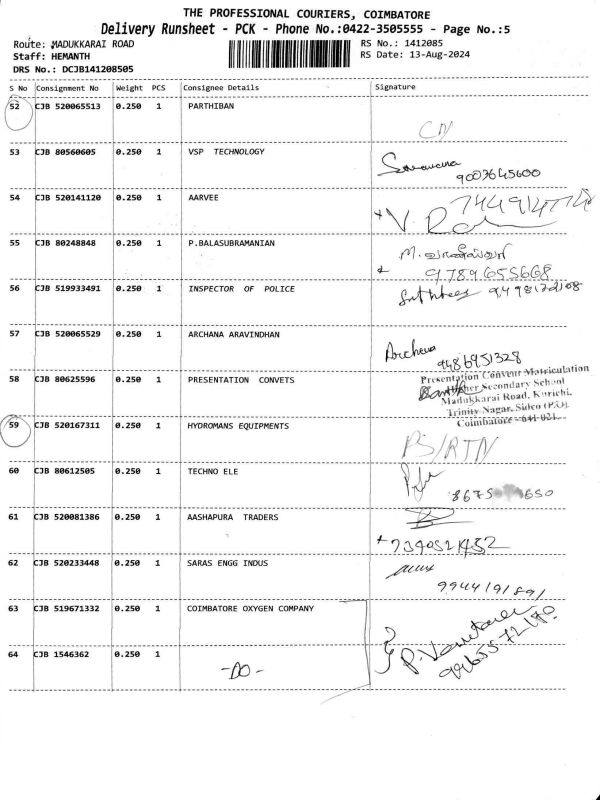 THE PROFESSIONAL COURIERS, COIMBATORE
Delivery Runsheet - PCK - Phone No.:0422-3505555 - Page No.:5
Route: MADUKKARAI ROAD
RS No.: 1412085
Staff: HEMANTH
RS Date: 13-Aug-2024
DRS No.: DCJB141208505
S No Consignment No Weight PCS Consignee Details Signature
52 CJB 520065513 0.250 1 PARTHIBAN
CN
53 CJB 80560605 0.250 1 VSP TECHNOLOGY
9003645600
54 CJB 520141120 0.250 1 AARVEE
55 CJB 80248848 0.250 1 P.BALASUBRAMANIAN
9789655668
56 CJB 519933491 0.250 1 INSPECTOR OF POLICE
57 CJB 520065529 0.250 1 ARCHANA ARAVINDHAN
Archana
9486951328
58 CJB 80625596 0.250 1 PRESENTATION CONVETS
Presentation Convent Matriculation
Higher Secondary School
Madukkarai Road, Kurichi,
Trinity Nagar, Sidco (P.O),
Coimbatore - 641 021.
59 CJB 520167311 0.250 1 HYDROMANS EQUIPMENTS
PS/RTN
60 CJB 80612505 0.250 1 TECHNO ELE
61 CJB 520081386 0.250 1 AASHAPURA TRADERS
62 CJB 520233448 0.250 1 SARAS ENGG INDUS
9944191891
63 CJB 519671332 0.250 1 COIMBATORE OXYGEN COMPANY
64 CJB 1546362 0.250 1
-DO-